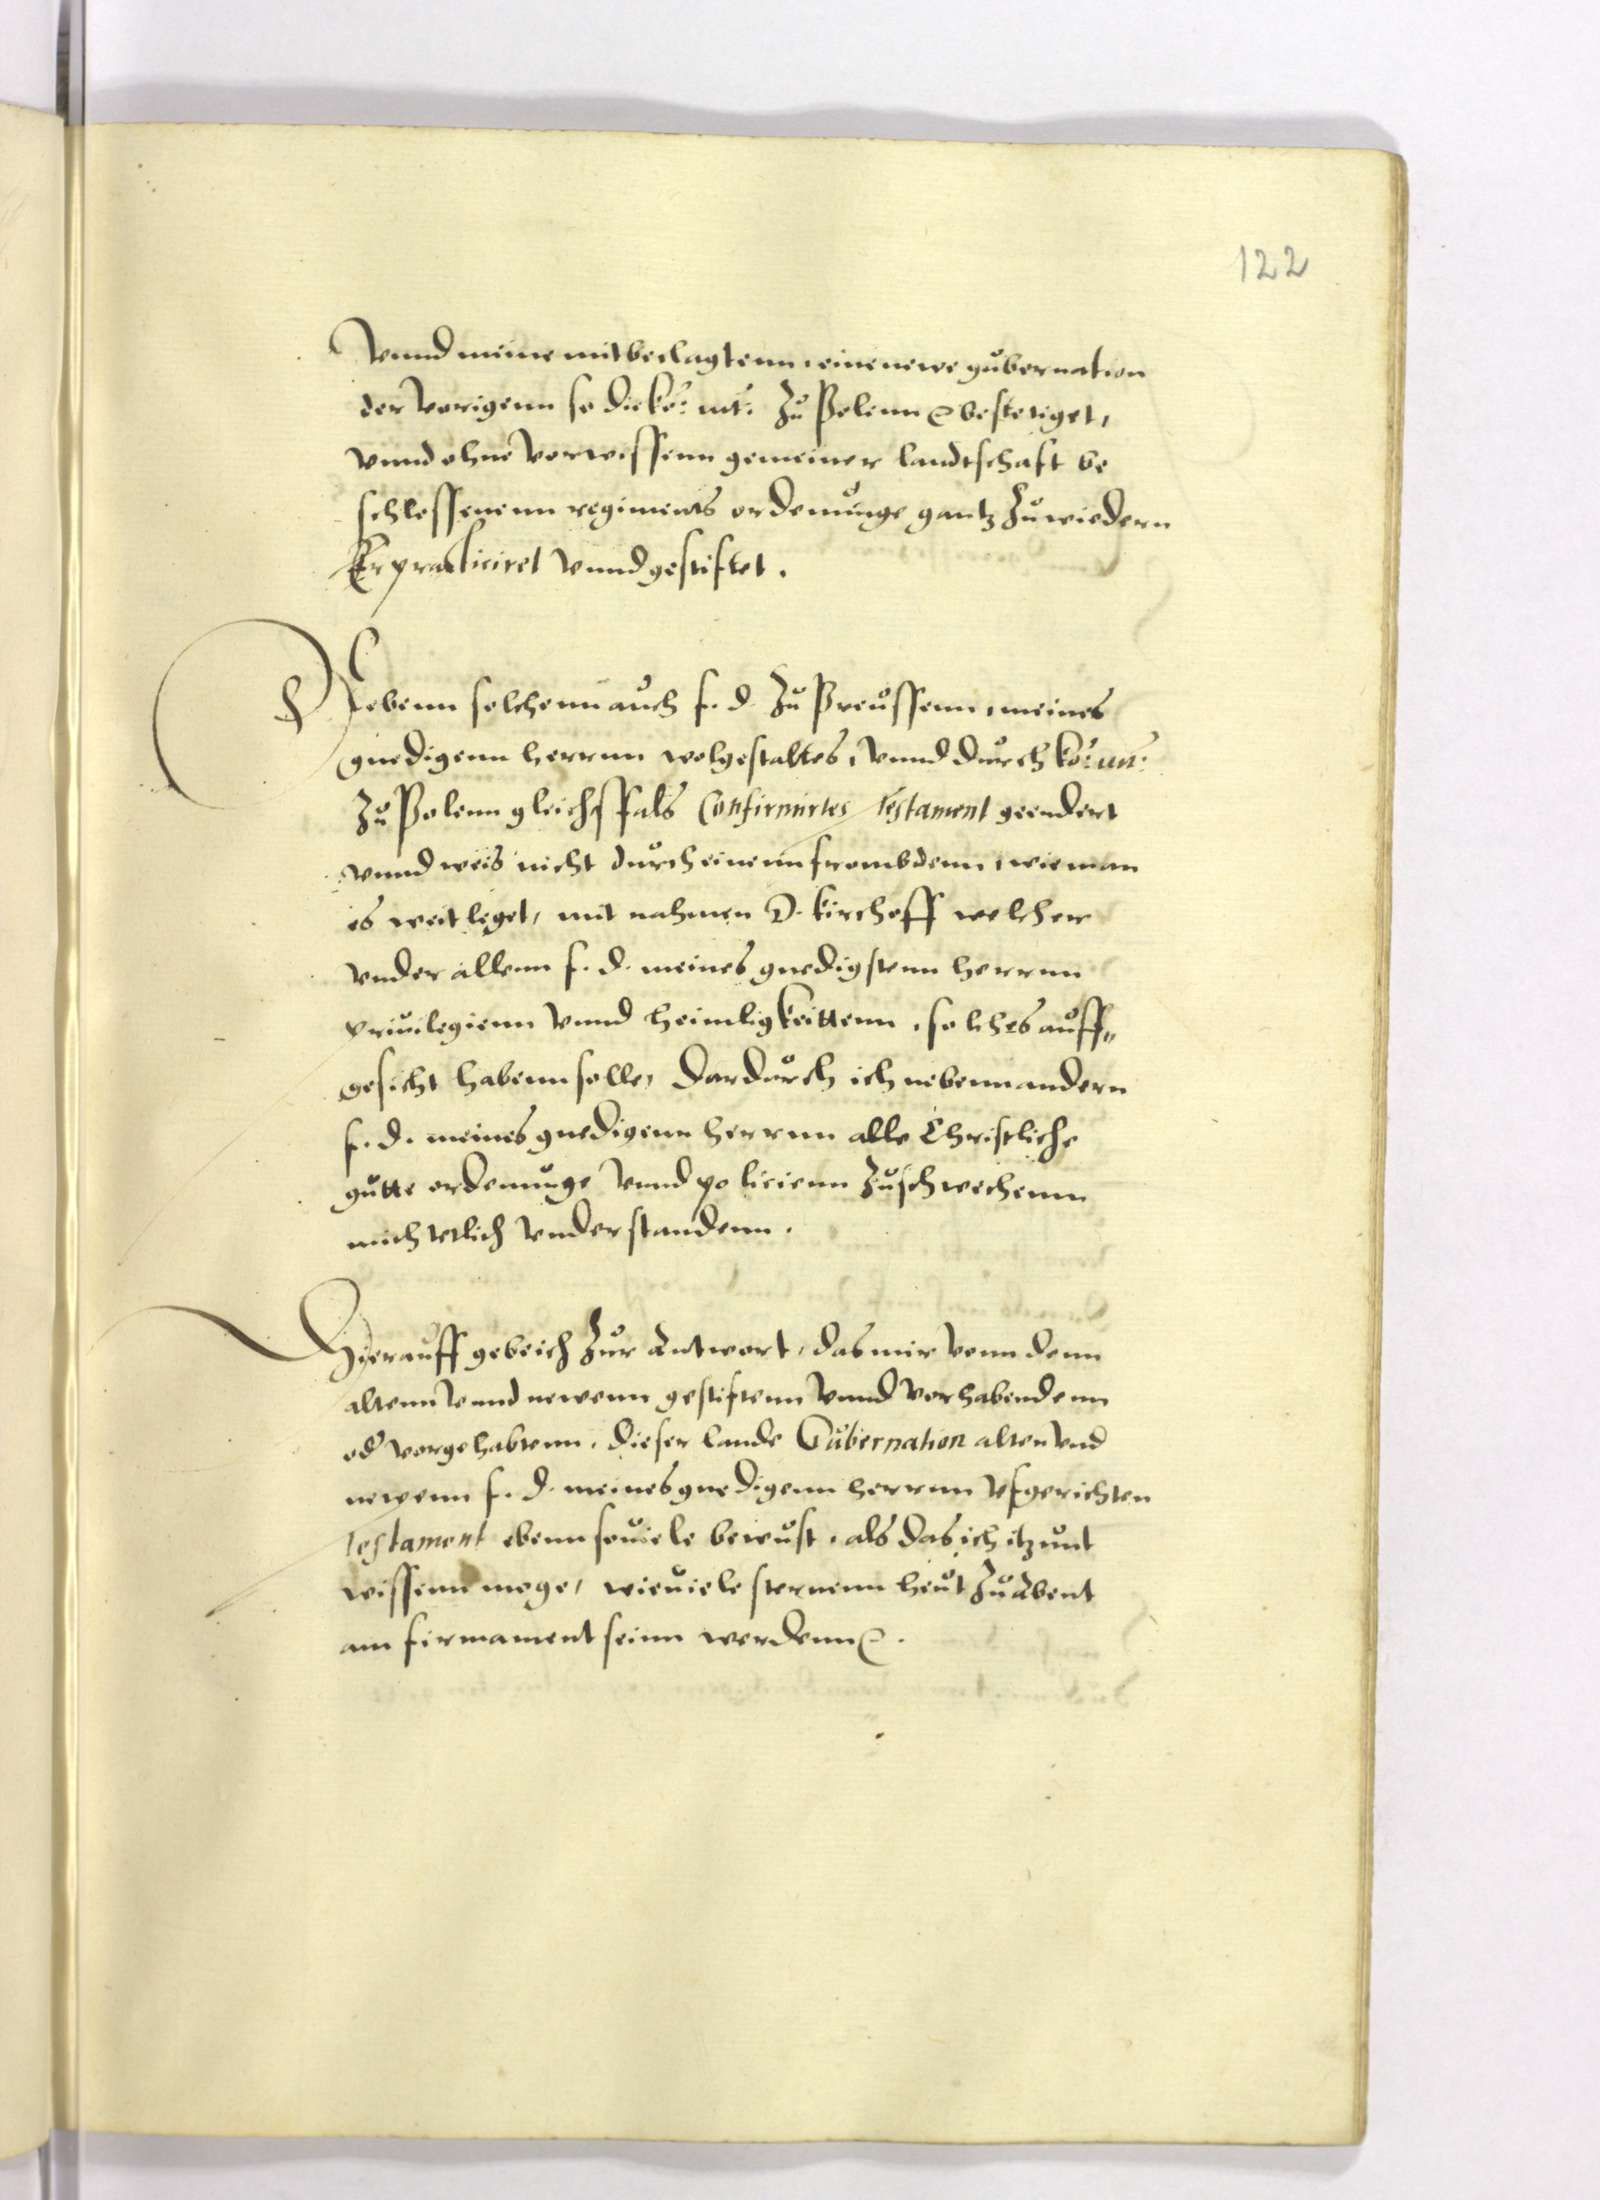 122
Vnnd meine mitbeclagtenn, eine newe gubernation
der Vorigenn so die ko: mt: Zu Polenn bestetiget,
vnnd ohne Vorwissenn gemeiner landtschaft be
schlossenenn regiments ordenunge gantz Zuwiedern
Expracticiret Vnnd gestiftet.
Nebenn solchenn auch f. d. Zu Preussenn, meines
gnedigenn herrnn wolgestaltes, Vnnd durch ko: mt:
Zu Polenn gleichffals Confirmirtes Testament geendert
vnnd weis nicht durch einenn frombdenn, wie man
es weit leget, mit nahmen D. kirchoff welcher
vnder allenn f. d. meines gnedigstenn herrnn
Priuilegienn Vnnd heimligkeittenn, solches auff„
gesicht habenn solle, dardurch ich nebenn andern
f. d. meines gnedigenn herrnn alle Christliche
gutte ordenunge Vnnd policienn Zuschwechenn
mich etlich Vnderstandenn.
Hierauff gebe ich Zur Antwort, das mir Vonn denn
altenn Vnnd newenn gestiftenn Vnnd Vorhabendenn
od Vorgehabtenn, dieser lande Gubernation alten Vnd
newenn f. d. meines gnedigenn herrnn Vfgerichten
Testament ebenn souiele bewust, als das ich itzunt
wissenn moge, wieuiele sternenn heut Zu Abent
am firmament seinn werdenn.